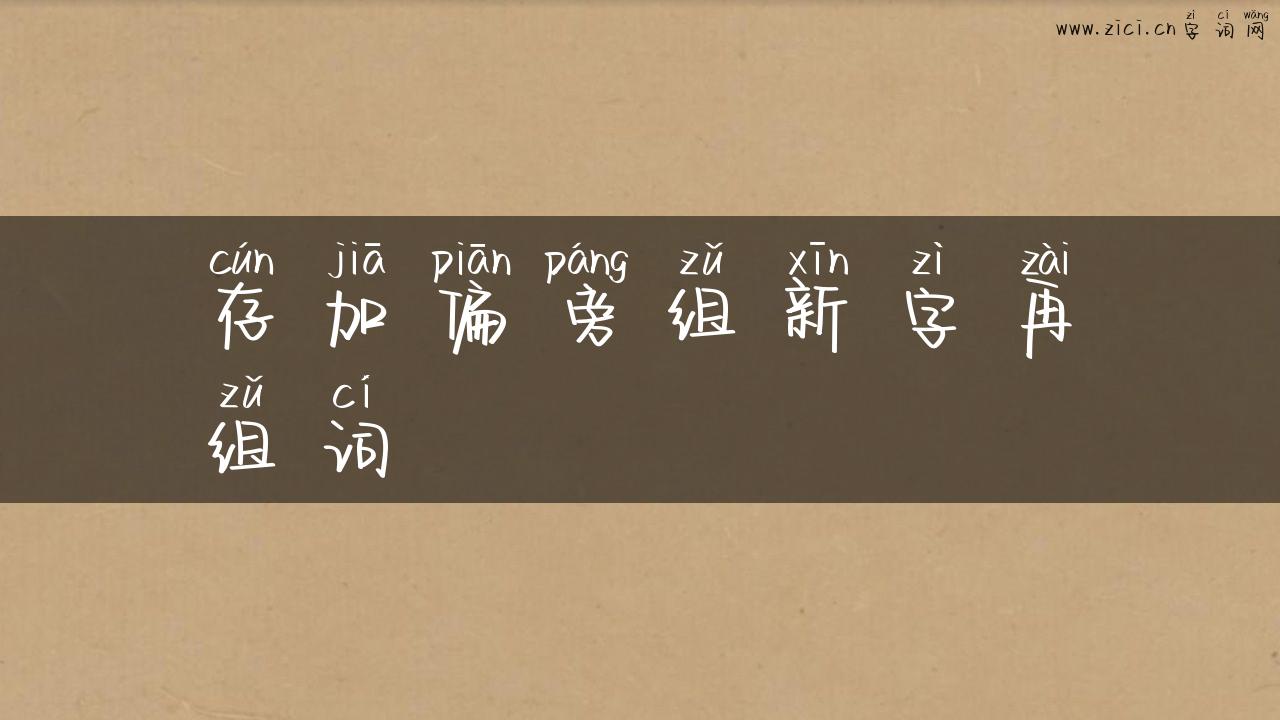 zì cí wǎng
www.zici.cn 字词网
cún jiā piān páng zǔ xīn zì zài
存加偏旁组新字再
zǔ cí
组词